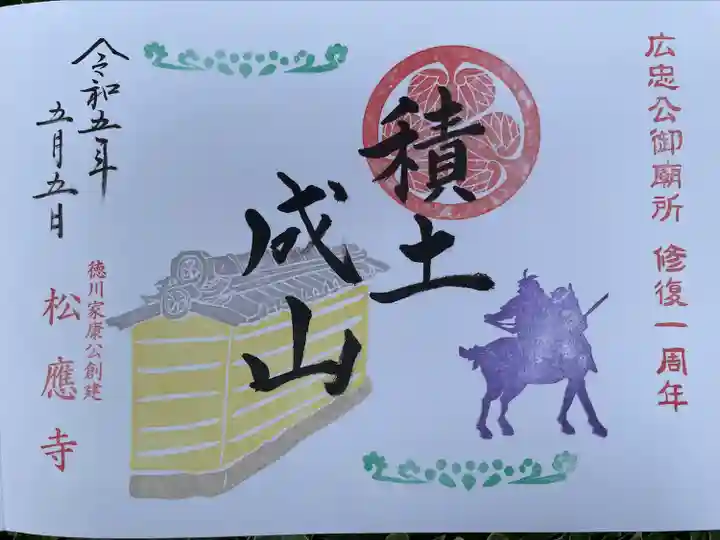 広忠公御廟所 修復一周年
積土
成山
令和五年
五月五日
徳川家康公創建
松應寺